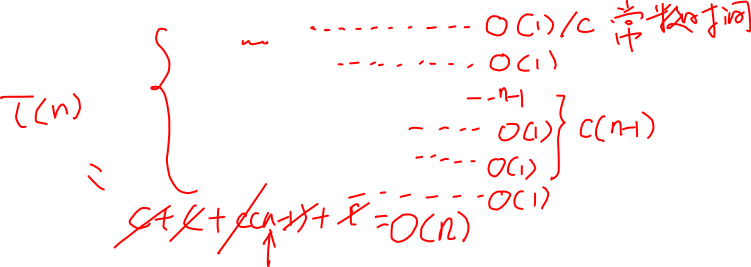 O(1)/c 常数时间
O(1)
n-1
T(n)
O(1)
c(n-1)
O(1)
O(1)
= c+c+c(n-1)+c=O(n)